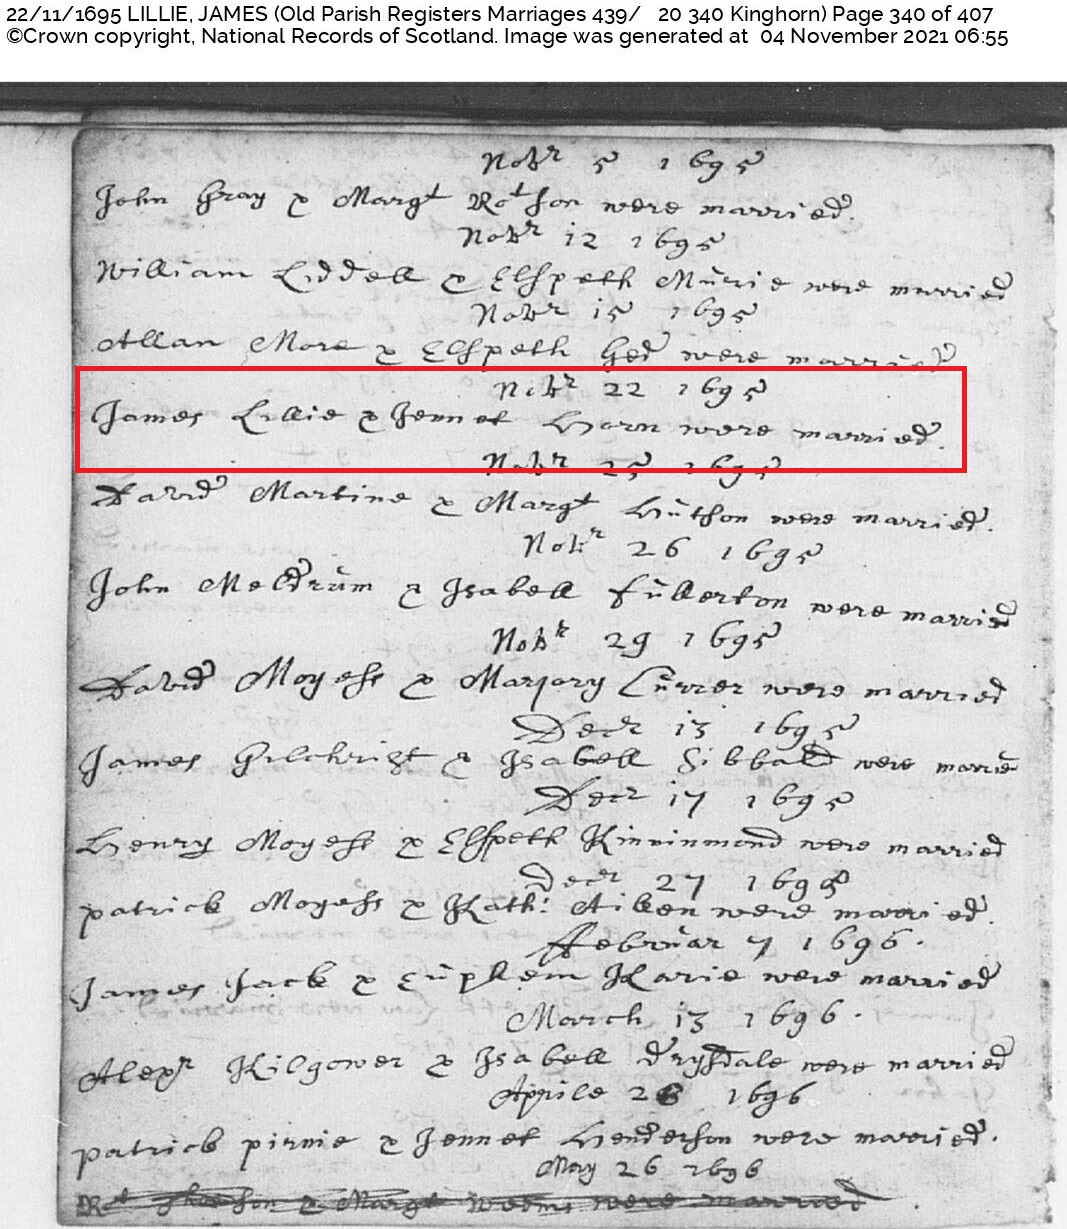 22/11/1695 LILLIE, JAMES (Old Parish Registers Marriages 439/   20 340 Kinghorn) Page 340 of 407
©Crown copyright, National Records of Scotland. Image was generated at  04 November 2021 06:55
Nobr 5 1695
John Gray & Margt Rotson were married.
Nobr 12 1695
William Liddell & Elspeth Murie were married
Nobr 15 1695
Allan More & Elspeth Ged were married
Nobr 22 1695
James Lillie & Jennet Horn were married.
Nobr 25 1695
David Martine & Margt Hutson were married.
Nobr 26 1695
John Meldrum & Isabell Fullerton were married
Nobr 29 1695
David Moyess & Marjory Currer were married
Decr 13 1695
James Gilchrist & Isabell Sibbald were married
Decr 17 1695
Henry Moyess & Elspeth Kininmond were married
Decr 27 1695
patrick Moyess & Kath: Aitken were married.
ffebruar 7 1696.
James Jack & Euphem were married
March 13 1696.
Alexr Kilgower & Isabell drysdale were married
Aprile 26 1696
patrick pirnie & Jennet Henderson were married.
May 26 1696
Rt & Margt Weems were married